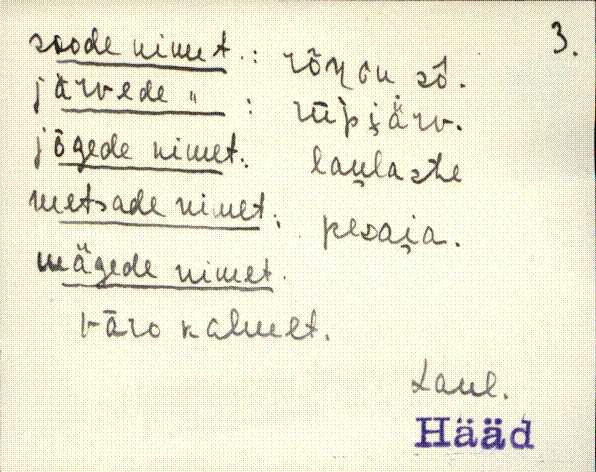 3.
soode nimet.: rõŋŋu sō.
järvede " : rüpjärv.
jõgede nimet. laulaste
metsade nimet. pesaia.
mägede nimet.
väro kalmet.
Laul.
Hääd